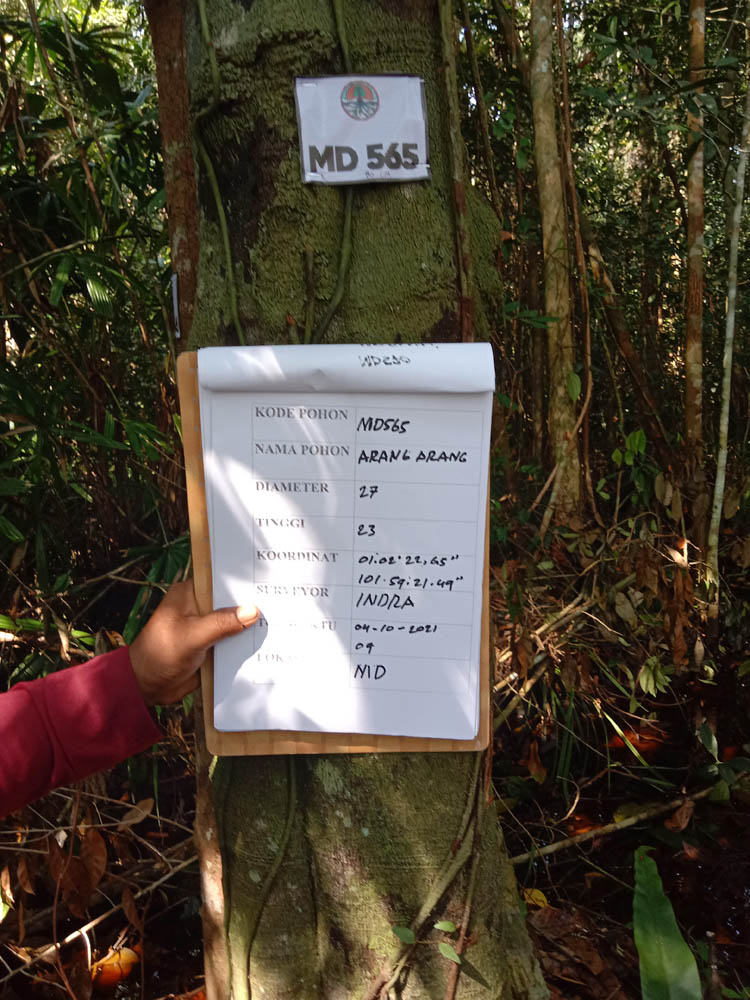 MD 565
KODE POHON MD565
NAMA POHON ARANG ARANG
DIAMETER 27
TINGGI 23
KOORDINAT 01:02'22,65"
101.59:21.49"
SURVEYOR INDRA
04-10-2021
09
MD